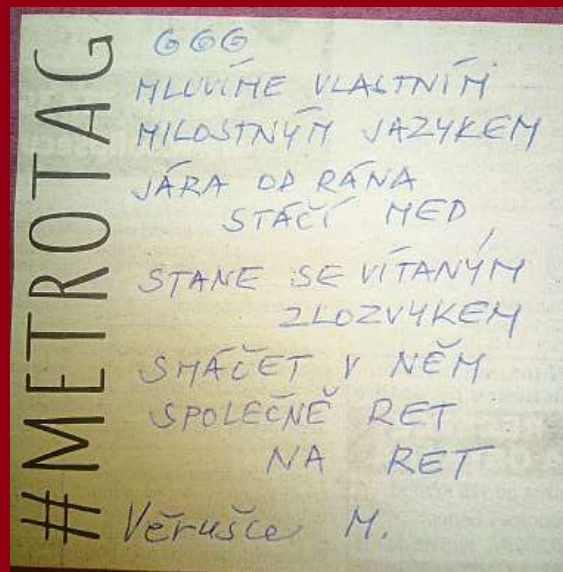 #METROTAG
666
MLUVÍME VLASTNÍM
MILOSTNÝM JAZYKEM
JÁRA OD RÁNA
STÁČÍ MED,
STANE SE VÍTANÝM
ZLOZVYKEM
SMÁČET V NĚM
SPOLEČNĚ RET
NA RET
Věrušce M.